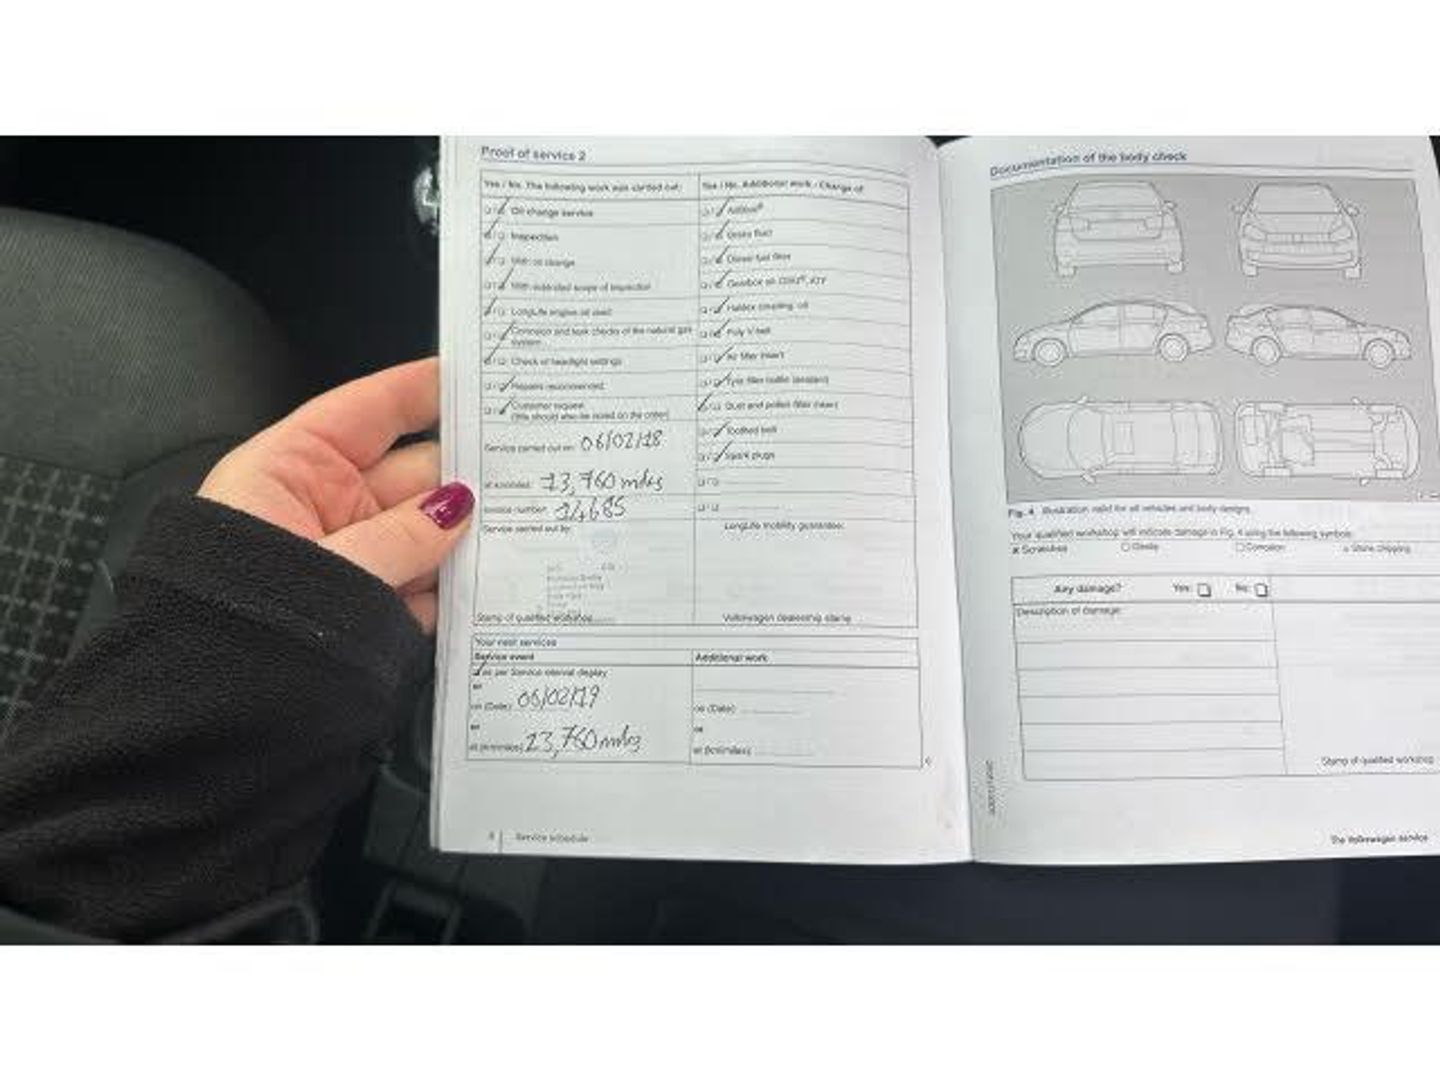 Proof of service 2
Yes / No. The following work was carried out:
Oil change service
Inspection
With oil change
With extended scope of inspection
LongLife engine oil used
Corrosion and leak checks of the natural gas
system
Check of headlight settings
Repairs recommended:
Customer request
(this should also be noted on the order)
Service carried out on: 06/02/18
at km/miles: 13,760 miles
Invoice number: 14685
Service carried out by:
Stamp of qualified workshop
Yes / No. Additional work - Change of:
AdBlue®
Brake fluid
Diesel fuel filter
Gearbox oil DSG®, ATF
Haldex coupling oil
Poly V-belt
Air filter insert
Tyre filler bottle (sealant)
Dust and pollen filter (insert)
Toothed belt
Spark plugs
LongLife mobility guarantee:
Volkswagen dealership stamp
Your next services
Service event
as per Service interval display
or
on (Date): 05/02/19
or
at (km/miles): 23,760 miles
Additional work
on (Date):
or
at (km/miles):
8 | Service schedule
Documentation of the body check
Fig. 4 Illustration valid for all vehicles and body designs.
Your qualified workshop will indicate damage in Fig. 4 using the following symbols:
x Scratches
Dents
Corrosion
Stone chipping
Any damage? Yes: No:
Description of damage:
Stamp of qualified workshop
The Volkswagen service